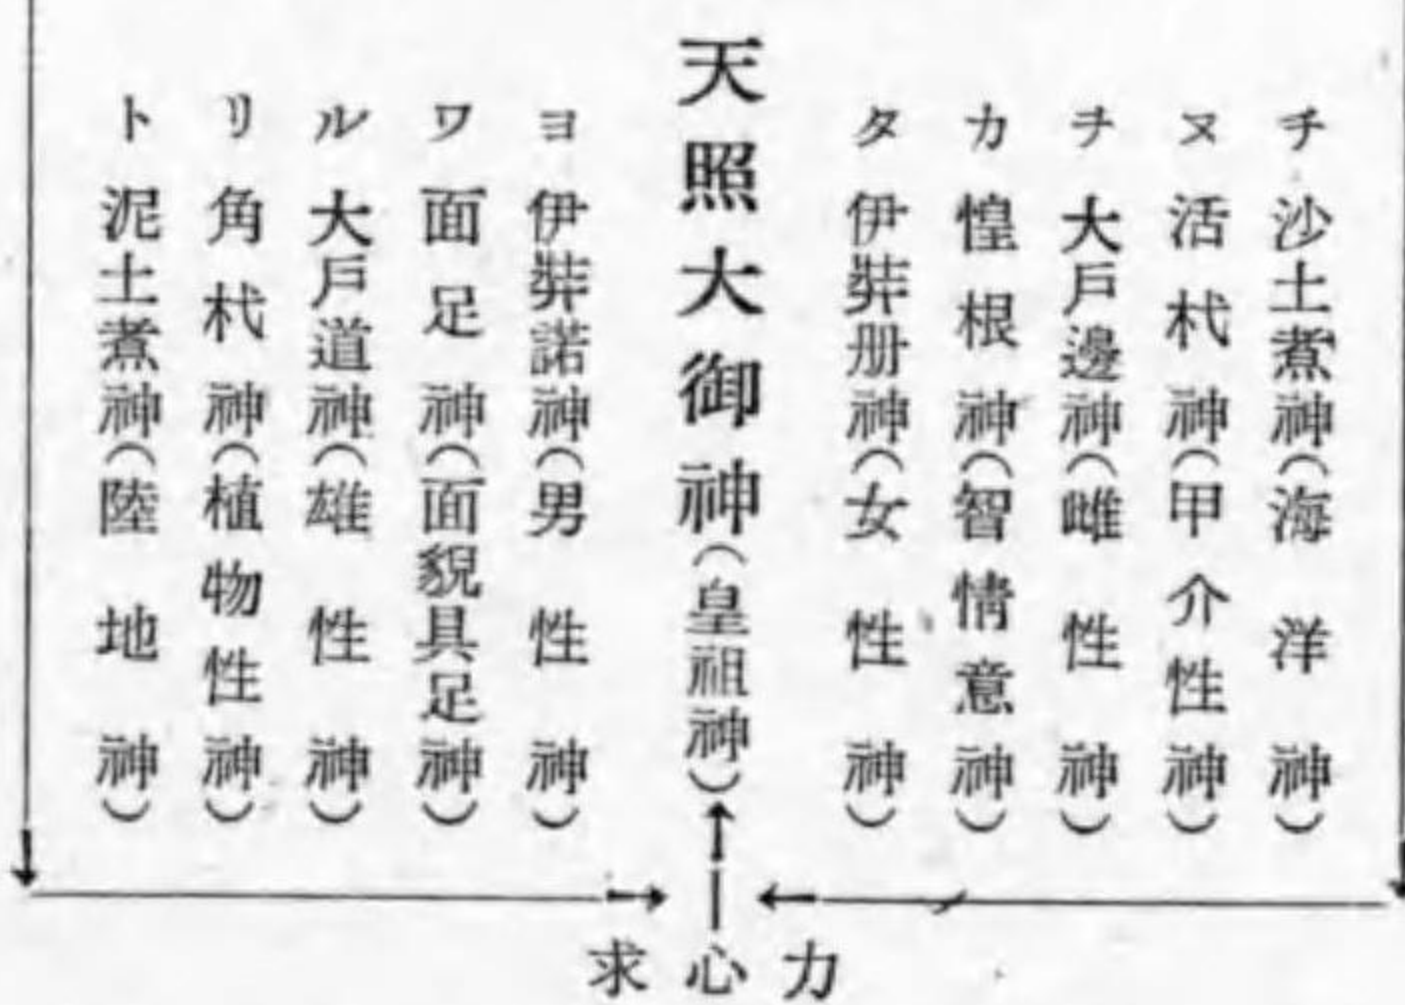 チ 沙土煮神(海洋神)
ヌ 活杙神(甲介性神)
ヲ 大戶邊神(雌性神)
カ 惶根神(智情意神)
タ 伊弉册神(女性神)
天照大御神(皇祖神)
ヨ 伊弉諾神(男性神)
ワ 面足神(面貌具足神)
ル 大戶道神(雄性神)
リ 角杙神(植物性神)
ト 泥土煮神(陸地神)
求心力